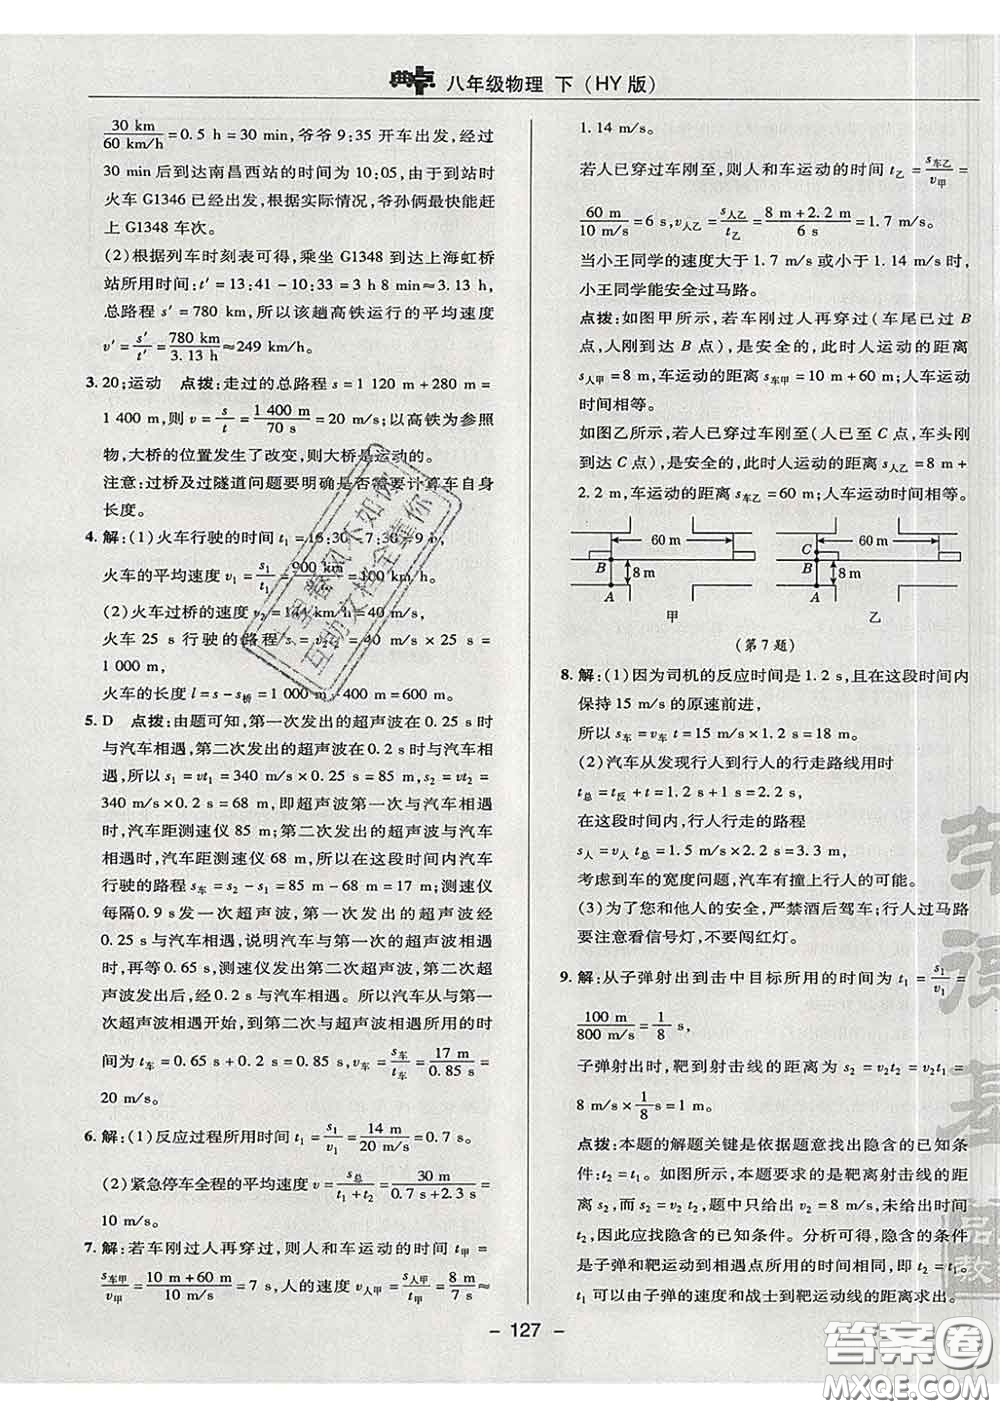 典点 八年级物理 下(HY版)
30 km/60 km/h=0.5 h=30 min,爷爷9:35开车出发,经过
30 min后到达南昌西站的时间为10:05,由于到站时
火车G1346已经出发,根据实际情况,爷孙俩最快能赶
上G1348车次。
(2)根据列车时刻表可得,乘坐G1348到达上海虹桥
站所用时间:t′=13:41-10:33=3 h 8 min≈3.13 h,
总路程s′=780 km,所以该趟高铁运行的平均速度
v′=s′/t′=780 km/3.13 h≈249 km/h。
3. 20;运动 点拨:走过的总路程s=1 120 m+280 m=
1 400 m,则v=s/t=1 400 m/70 s=20 m/s;以高铁为参照
物,大桥的位置发生了改变,则大桥是运动的。
注意:过桥及过隧道问题要明确是否需要计算车自身
长度。
4. 解:(1)火车行驶的时间t₁=16:30-7:30=9 h,
火车的平均速度v₁=s₁/t₁=900 km/=100 km/h。
(2)火车过桥的速度v₂=144 km/h=40 m/s,
火车25 s行驶的路程s=v₂t=40 m/s×25 s=
1 000 m,
火车的长度l=s-s桥=1 000 m-400 m=600 m。
5. D 点拨:由题可知,第一次发出的超声波在0.25 s时
与汽车相遇,第二次发出的超声波在0.2 s时与汽车相
遇,所以s₁=vt₁=340 m/s×0.25 s=85 m,s₂=vt₂=
340 m/s×0.2 s=68 m,即超声波第一次与汽车相遇
时,汽车距测速仪85 m;第二次发出的超声波与汽车
相遇时,汽车距测速仪68 m,所以在这段时间内汽车
行驶的路程s车=s₂-s₁=85 m-68 m=17 m;测速仪
每隔0.9 s发一次超声波,第一次发出的超声波经
0.25 s与汽车相遇,说明汽车与第一次超声波相遇
时,再等0.65 s,测速仪发出第二次超声波,第二次超
声波发出后,经0.2 s与汽车相遇。所以汽车从与第
一次超声波相遇开始,到第二次与超声波相遇所用的时
间为t车=0.65 s+0.2 s=0.85 s,v车=s车/t车=17 m/0.85 s=
20 m/s。
6. 解:(1)反应过程所用时间t₁=s₁/v₁=14 m/20 m/s=0.7 s。
(2)紧急停车全程的平均速度v=s总/t₁+t₂=30 m/0.7 s+2.3 s=
10 m/s。
7. 解:若车刚过人再穿过,则人和车运动的时间t甲=
s车甲/v甲=10 m+60 m/10 m/s=7 s,人的速度v人甲=s人甲/t甲=8 m/7 s≈
1.14 m/s。
若人已穿过车刚至,则人和车运动的时间t乙=s车乙/v甲=
60 m/10 m/s=6 s,v人乙=s人乙/t乙=8 m+2.2 m/6 s=1.7 m/s。
当小王同学的速度大于1.7 m/s或小于1.14 m/s时,
小王同学能安全过马路。
点拨:如图甲所示,若车刚过人再穿过(车尾已过B
点,人刚到达B点),是安全的,此时人运动的距离
s人甲=8 m,车运动的距离s车甲=10 m+60 m;人车运动
时间相等。
如图乙所示,若人已穿过车刚至(人已至C点,车头刚
到达C点),是安全的,此时人运动的距离s人乙=8 m+
2.2 m,车运动的距离s车乙=60 m;人车运动时间相等。
60 m
B
8 m
A
甲
60 m
C
B
8 m
A
乙
(第7题)
8. 解:(1)因为司机的反应时间是1.2 s,且在这段时间内
保持15 m/s的原速前进,
所以s车=v车t=15 m/s×1.2 s=18 m。
(2)汽车从发现行人到行人的行走路线用时
t总=t反+t=1.2 s+1 s=2.2 s,
在这段时间内,行人行走的路程
s人=v人t总=1.5 m/s×2.2 s=3.3 m,
考虑到车的宽度问题,汽车有撞上行人的可能。
(3)为了您和他人的安全,严禁酒后驾车;行人过马路
要注意看信号灯,不要闯红灯。
9. 解:从子弹射出到击中目标所用的时间为t₁=s₁/v₁=
100 m/800 m/s=1/8 s,
子弹射出时,靶到射击线的距离为s₂=v₂t₂=v₂t₁=
8 m/s×1/8 s=1 m。
点拨:本题的解题关键是依据题意找出隐含的已知条
件:t₂=t₁。如图所示,本题要求的是靶离射击线的距
离s₂,而s₂=v₂t₂,题中只给出v₂=8 m/s,未给出时间
t₂,因此应找隐含的已知条件。分析可得,隐含的条件
是子弹和靶运动到相遇点所用的时间相同,即t₂=t₁。
t₁可以由子弹的速度和战士到靶运动线的距离求出。
- 127 -
答案圈
MXQE.COM